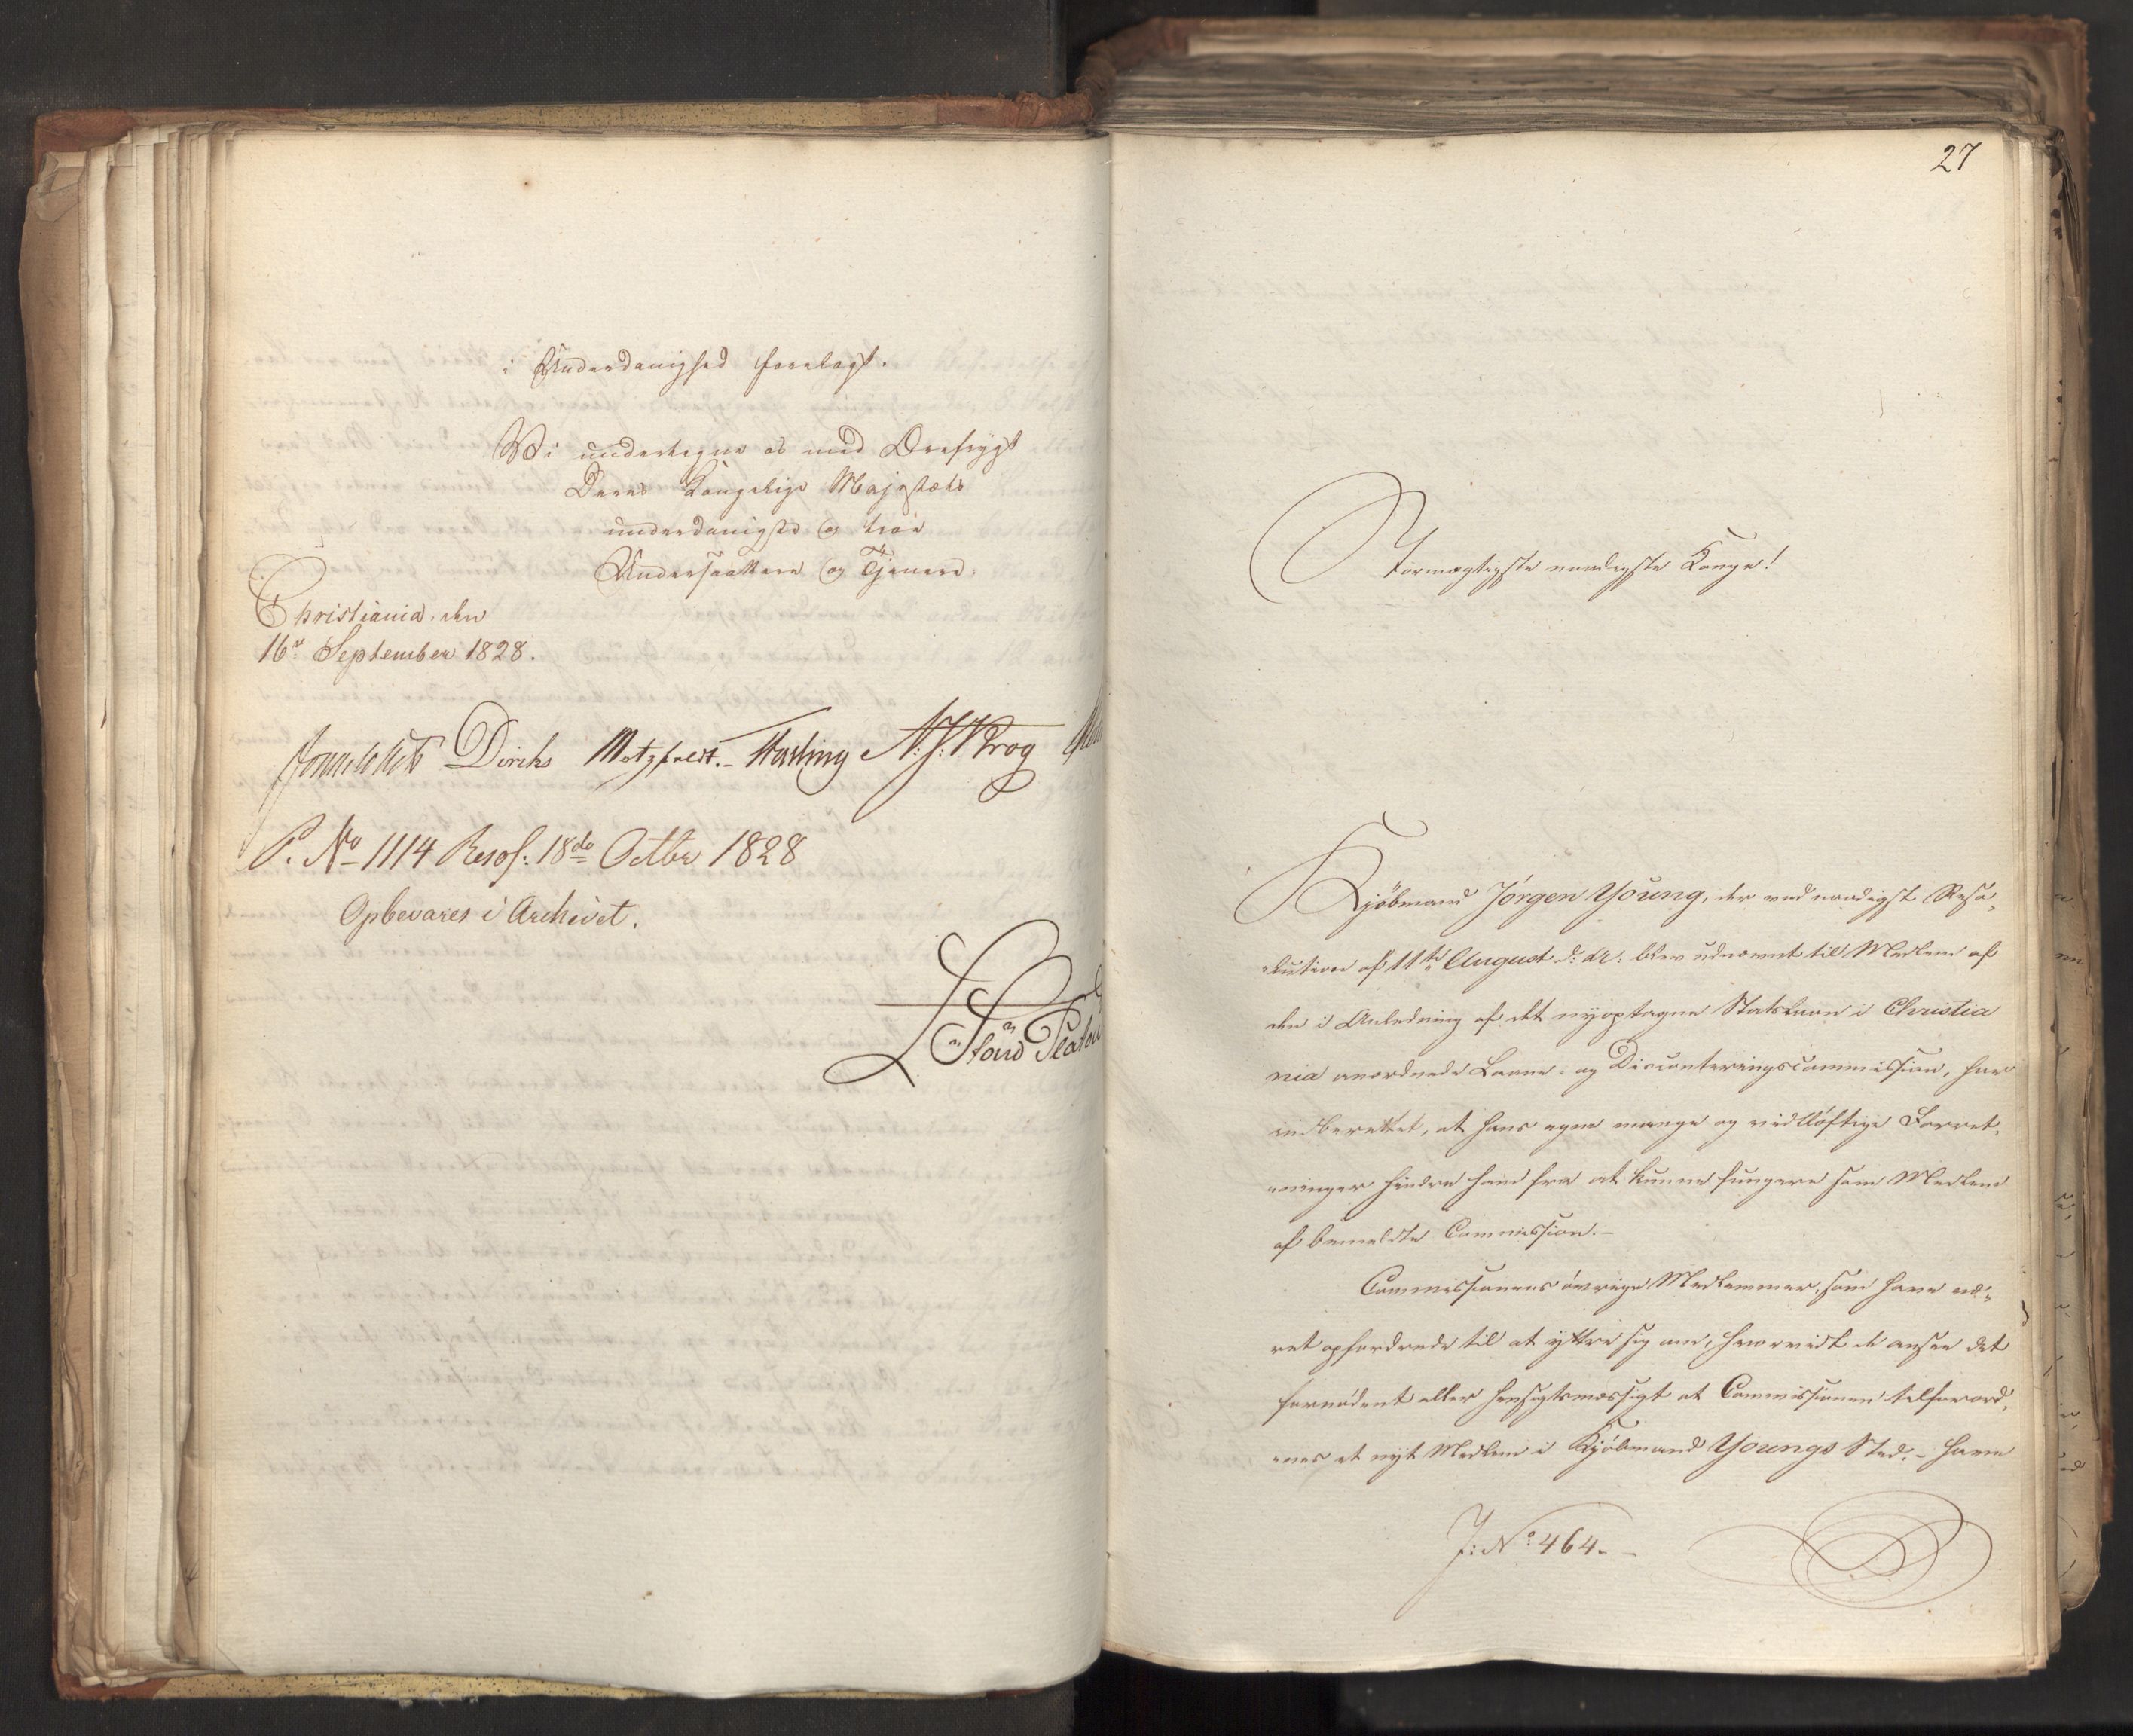 i Underdanighed forelagt.
Vi undertegne os med Ærefrygt
Deres Kongelige Majestæts
underdanigste og troe
Undersaattere og Tjenere.
Christiania, den
16de September 1828.
Diriks Motzfeldt. Fasting N: J: Krog
P. No 1114 Resol: 18de Octbr 1828
Opbevares i Archivet.
27
Stormægtigste naadigste Konge!
Kjöbmand Jörgen Young, der ved naadigst Reso-
lution af 11te August d: A: blev udnævnt til Medlem af
den i Anledning af det nyoptagne Statslaan i Christia
nia anordnede Laane- og Disconteringscommission, har
indberettet, at hans egne mange og vidtlöftige Forret-
ninger hindre ham fra at kunne fungere som Medlem
af bemeldte Commission.-
Commissionens övrige Medlemmer, som have væ-
ret opfordrede til at yttre sig om, hvorvidt de ansee det
fornödent eller hensigtsmæssigt at Commissionen tilforord-
nes et nyt Medlem i Kjöbmand Youngs Sted,- have
J: No 464.-